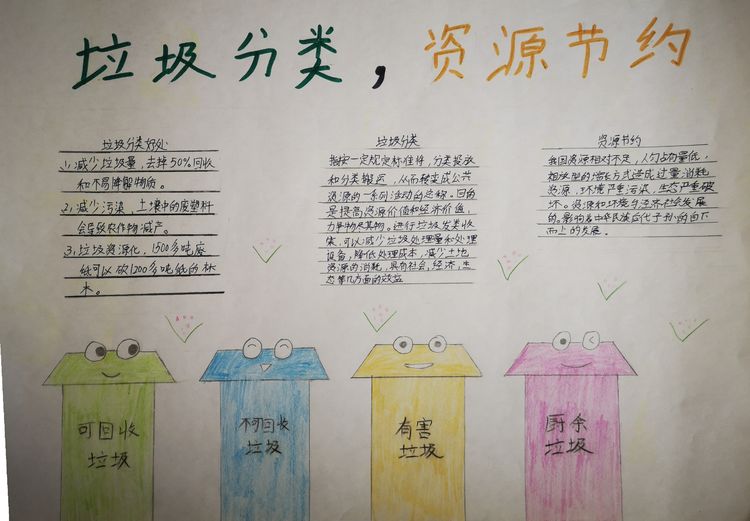 垃圾分类，资源节约
垃圾分类好处
1、减少垃圾量，去掉50%回收
和不易降解物质。
2、减少污染，土壤中的废塑料
会导致农作物减产。
3、垃圾资源化，1500多吨废
纸可以砍1200多吨纸的林
木。
垃圾分类
指按一定规定标准件，分类投放
和分类搬运，从而转变成公共
资源的一系列活动的总称。目的
是提高资源价值和经济价值，
力争物尽其物。进行垃圾发类收
集，可以减少垃圾处理量和处理
设备，降低处理成本，减少土地
资源的消耗，具有社会，经济，生
态等几方面的效益
资源节约
我国资源相对不足，人均占有量低，
粗放型的增长方式造成过量消耗
资源，环境严重污染，生态严重破
坏。资源和环境与经济社会发展
的，影响着中华民族后代子孙的
而上的发展。
可回收
垃圾
不可回收
垃圾
有害
垃圾
厨余
垃圾